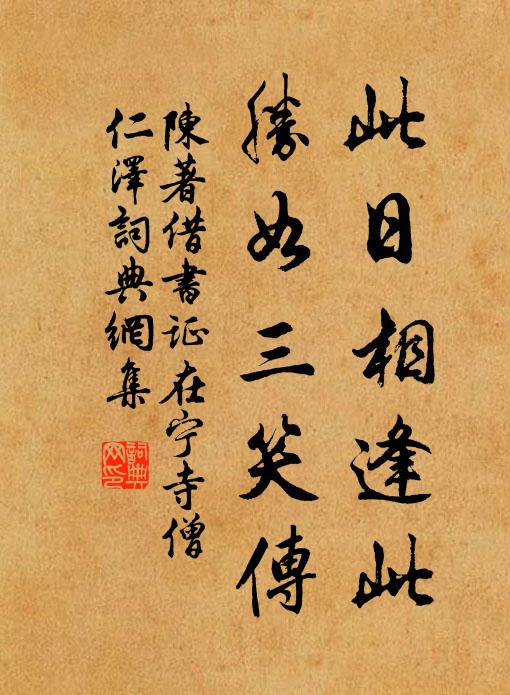 此日相逢此
勝如三笑傳
陳著借書証在宁寺僧
仁澤詞典網集
詞典
网印